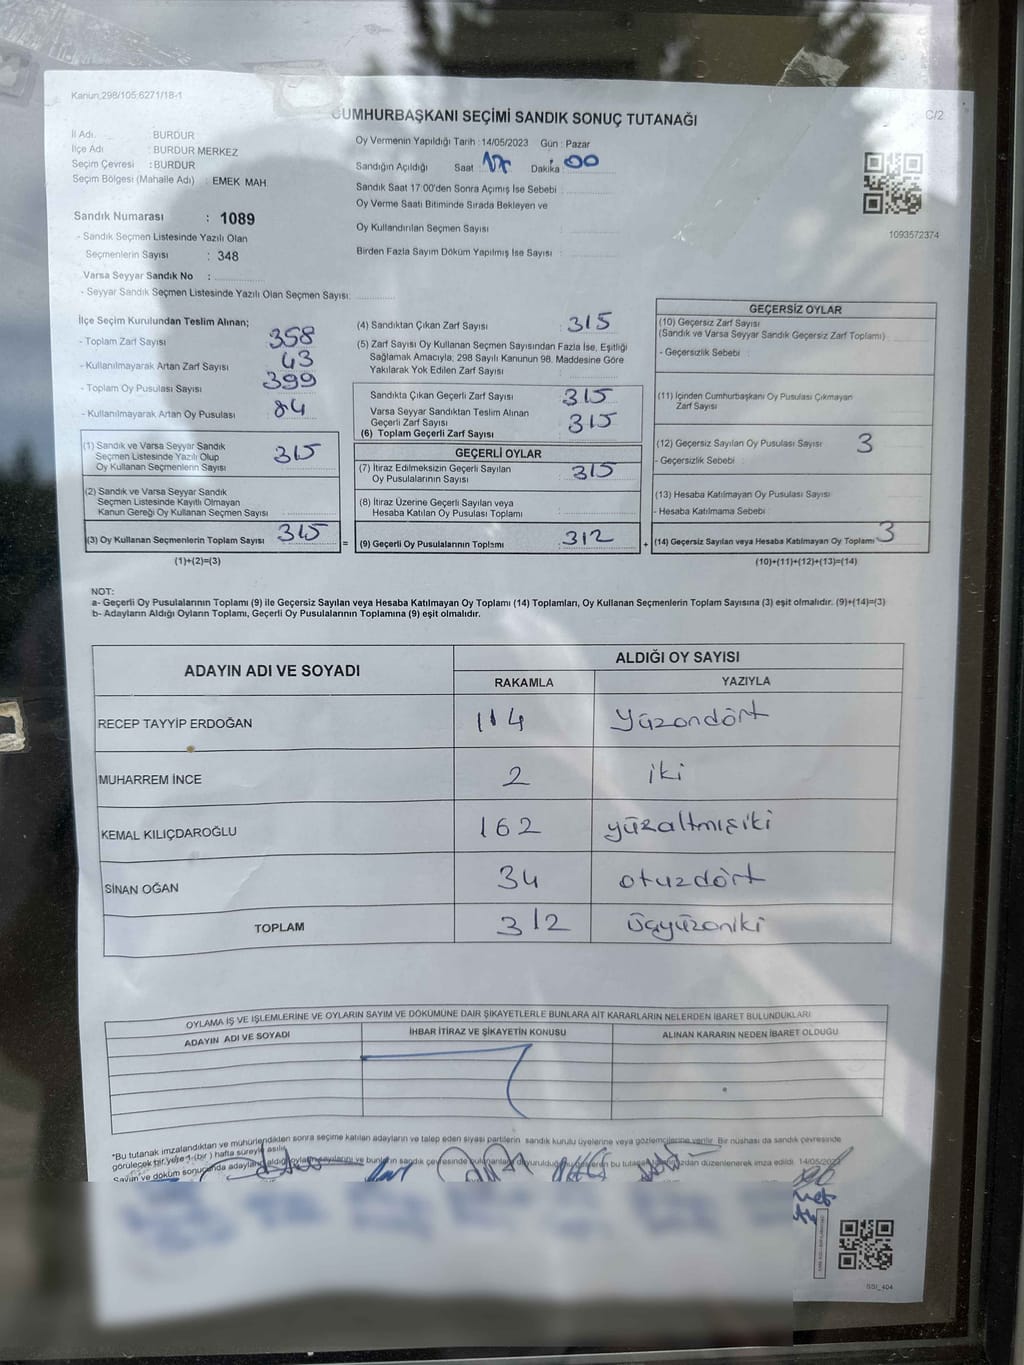 Kanun,298/105:6271/18-1
CUMHURBAŞKANI SEÇİMİ SANDIK SONUÇ TUTANAĞI
C/2
İl Adı. : BURDUR
İlçe Adı : BURDUR MERKEZ
Seçim Çevresi : BURDUR
Seçim Bölgesi (Mahalle Adı) : EMEK MAH.
Oy Vermenin Yapıldığı Tarih : 14/05/2023 Gün : Pazar
Sandığın Açıldığı Saat 17 Dakika 00
Sandık Saat 17:00'den Sonra Açımış İse Sebebi :
Oy Verme Saati Bitiminde Sırada Bekleyen ve
Oy Kullandırılan Seçmen Sayısı :
Birden Fazla Sayım Döküm Yapılmış İse Sayısı :
1093572374
Sandık Numarası : 1089
- Sandık Seçmen Listesinde Yazılı Olan
Seçmenlerin Sayısı : 348
Varsa Seyyar Sandık No :
- Seyyar Sandık Seçmen Listesinde Yazılı Olan Seçmen Sayısı:
İlçe Seçim Kurulundan Teslim Alınan;
- Toplam Zarf Sayısı 358
- Kullanılmayarak Artan Zarf Sayısı 43
- Toplam Oy Pusulası Sayısı 399
- Kullanılmayarak Artan Oy Pusulası 84
(1) Sandık ve Varsa Seyyar Sandık
Seçmen Listesinde Yazılı Olup
Oy Kullanan Seçmenlerin Sayısı 315
(2) Sandık ve Varsa Seyyar Sandık
Seçmen Listesinde Kayıtlı Olmayan
Kanun Gereği Oy Kullanan Seçmen Sayısı
(3) Oy Kullanan Seçmenlerin Toplam Sayısı 315 =
(1)+(2)=(3)
(4) Sandıktan Çıkan Zarf Sayısı : 315
(5) Zarf Sayısı Oy Kullanan Seçmen Sayısından Fazla İse, Eşitliği
Sağlamak Amacıyla, 298 Sayılı Kanunun 98. Maddesine Göre
Yakılarak Yok Edilen Zarf Sayısı :
Sandıkta Çıkan Geçerli Zarf Sayısı : 315
Varsa Seyyar Sandıktan Teslim Alınan
Geçerli Zarf Sayısı : 315
(6) Toplam Geçerli Zarf Sayısı
GEÇERLİ OYLAR
(7) İtiraz Edilmeksizin Geçerli Sayılan
Oy Pusulalarının Sayısı : 315
(8) İtiraz Üzerine Geçerli Sayılan veya
Hesaba Katılan Oy Pusulası Toplamı
(9) Geçerli Oy Pusulalarının Toplamı : 312 +
GEÇERSİZ OYLAR
(10) Geçersiz Zarf Sayısı
(Sandık ve Varsa Seyyar Sandık Geçersiz Zarf Toplamı)
- Geçersizlik Sebebi :
(11) İçinden Cumhurbaşkanı Oy Pusulası Çıkmayan
Zarf Sayısı
(12) Geçersiz Sayılan Oy Pusulası Sayısı : 3
- Geçersizlik Sebebi :
(13) Hesaba Katılmayan Oy Pusulası Sayısı :
- Hesaba Katılmama Sebebi :
(14) Geçersiz Sayılan veya Hesaba Katılmayan Oy Toplamı 3
(10)+(11)+(12)+(13)=(14)
NOT:
a- Geçerli Oy Pusulalarının Toplamı (9) ile Geçersiz Sayılan veya Hesaba Katılmayan Oy Toplamı (14) Toplamları, Oy Kullanan Seçmenlerin Toplam Sayısına (3) eşit olmalıdır. (9)+(14)=(3)
b- Adayların Aldığı Oyların Toplamı, Geçerli Oy Pusulalarının Toplamına (9) eşit olmalıdır.
ADAYIN ADI VE SOYADI
ALDIĞI OY SAYISI
RAKAMLA YAZIYLA
RECEP TAYYİP ERDOĞAN 114 yüzondört
MUHARREM İNCE 2 iki
KEMAL KILIÇDAROĞLU 162 yüzaltmışiki
SİNAN OĞAN 34 otuzdört
TOPLAM 312 üçyüzoniki
OYLAMA İŞ VE İŞLEMLERİNE VE OYLARIN SAYIM VE DÖKÜMÜNE DAİR ŞİKAYETLERLE BUNLARA AİT KARARLARIN NELERDEN İBARET BULUNDUKLARI
ADAYIN ADI VE SOYADI İHBAR İTİRAZ VE ŞİKAYETİN KONUSU ALINAN KARARIN NEDEN İBARET OLDUĞU
"Bu tutanak imzalandıktan ve mühürlendikten sonra seçime katılan adayların ve talep eden siyasi partilerin sandık kurulu üyelerine veya gözlemcilerine verilir. Bir nüshası da sandık çevresinde
görülecek bir yere 1 (bir) hafta süreyle asılır.
Sayım ve döküm sonucunda adayların aldığı oyların sayılarını ve bunların sandık çevresinde bu tutanak düzenlenerek imza edildi. 14/05/2023
SSI_404